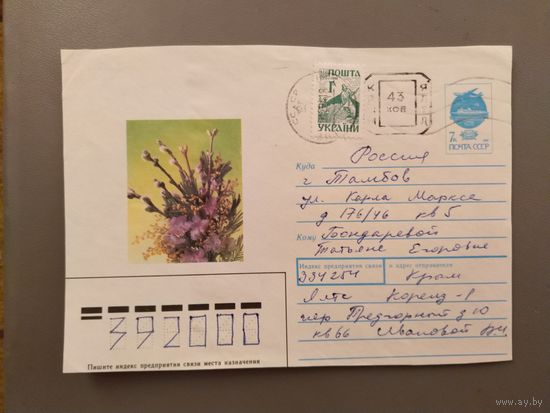 ПОШТА
УКРАЇНИ
43
коп
7к
ПОЧТА СССР
Куда Россия
г Тамбов
ул. Карла Маркса
д 176/46 кв 5
Кому Бондаревой
Татьяне Егоровне
Индекс предприятия связи и адрес отправителя
334254 Крым
Ялта Кореиз-1
Предгорный д 10
кв 66 Ивановой
392000
Пишите индекс предприятия связи места назначения
www.ay.by